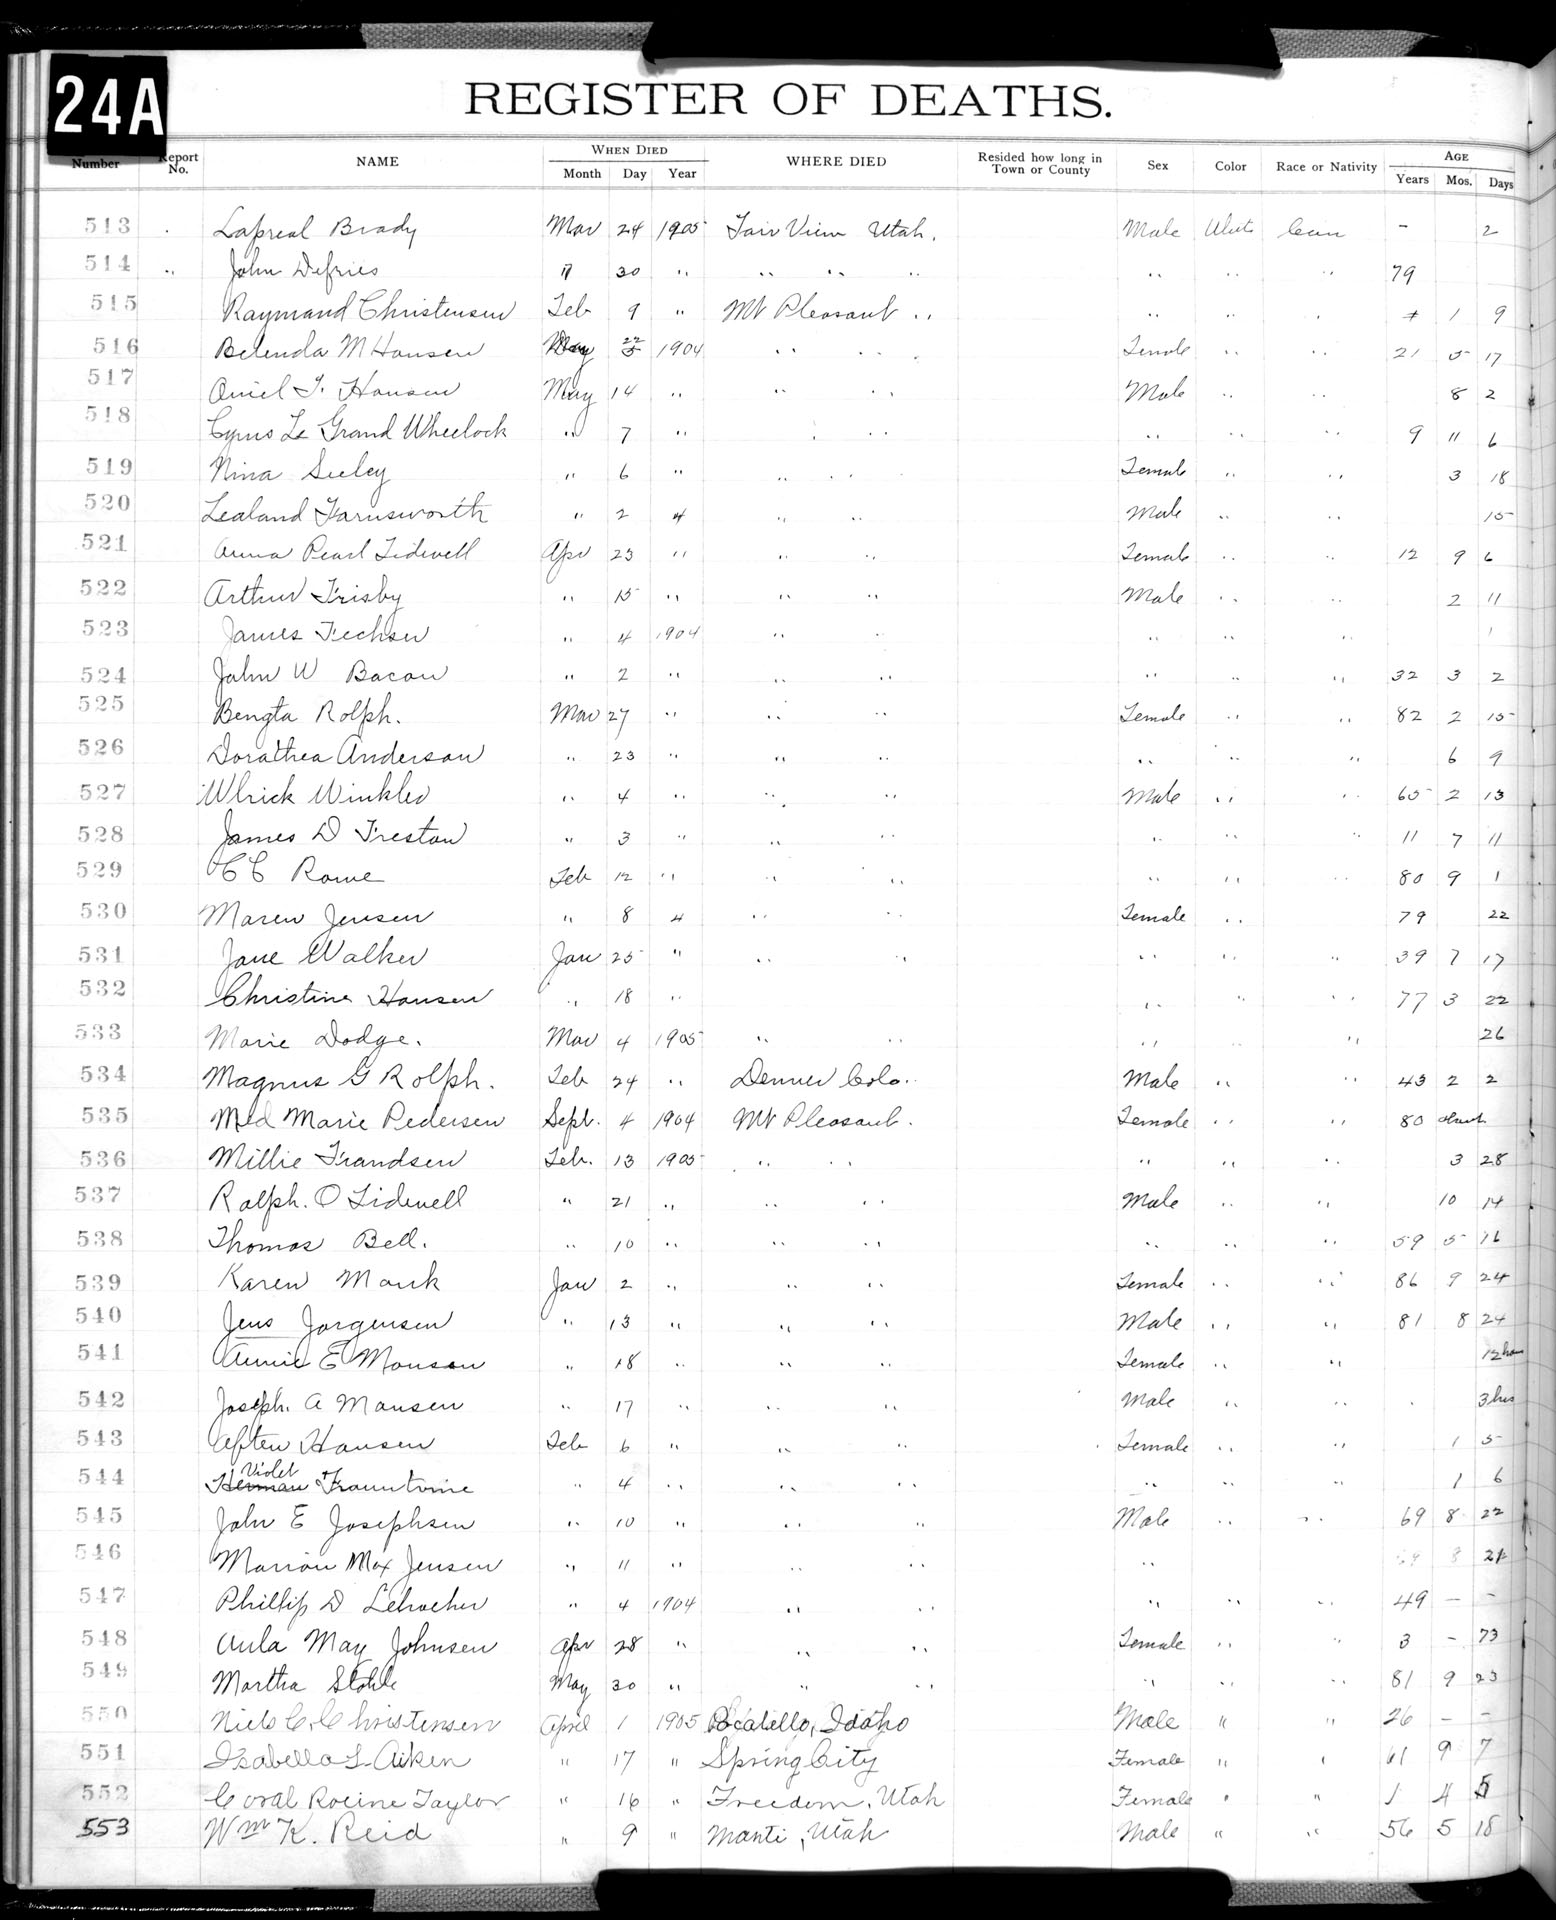 24A
REGISTER OF DEATHS.
Number Report No. NAME WHEN DIED Month Day Year WHERE DIED Resided how long in Town or County Sex Color Race or Nativity AGE Years Mos. Days
513 Lapreal Brady Mar 24 1905 Fair View Utah. Male White Cau - 2
514 John Defries " 30 " " " " " " " 79
515 Raymand Christensen Feb 9 " Mt Pleasant " " " " 1 9
516 Belenda M Hansen May 22 1904 " " Female " " 21 5 17
517 F. Hansen May 14 " " " Male " " 8 2
518 Cyrus Le Grand Wheelock " 7 " " " " " " 9 11 6
519 Nina Seeley " 6 " " " Female " " 3 18
520 Lealand Farnsworth " 2 4 " " Male " " 15
521 Anna Pearl Tidwell Apr 23 " " " Female " " 12 9 6
522 Arthur Frisby " 15 " " " Male " " 2 11
523 James Fechser " 4 1904 " " " " " 1
524 John W Bacon " 2 " " " " " " 32 3 2
525 Bengta Rolph. Mar 27 " " " Female " " 82 2 15
526 Dorathea Anderson " 23 " " " " " " 6 9
527 Ulrick Winkler " 4 " " " Male " " 65 2 13
528 James D Freston " 3 " " " " " " 11 7 11
529 C C Rowe Feb 12 " " " " " " 80 9 1
530 Maren Jensen " 8 4 " " Female " 79 22
531 Jane Walker Jan 25 " " " " " " 39 7 17
532 Christine Hansen " 18 " " " " 77 3 22
533 Marie Dodge. Mar 4 1905 " " " " 26
534 Magnus G Rolph. Feb 24 " Denver Colo. Male " " 43 2 2
535 Med Marie Pedersen Sept. 4 1904 Mt Pleasant. Female " " 80
536 Millie Frandsen Feb. 13 1905 " " " " " 3 28
537 Ralph. O Tidwell " 21 " " " Male " " 10 14
538 Thomas Bell. " 10 " " " " " " 59 5 16
539 Karen Monk Jan 2 " " " Female " " 86 9 24
540 Jens Jorgensen " 13 " " " Male " " 81 8 24
541 Annie E Monson " 18 " " " Female " " 12 hou
542 Joseph. A Monsen " 17 " " " Male " " 3 hrs
543 Aften Hansen Feb 6 " " " Female " " 1 5
544 Herman Violet Frauntvine " 4 " " " " " " 1 6
545 John E Josephsen " 10 " " " Male " " 69 8 22
546 Marion Max Jensen " 11 " " " " 8 21
547 Phillip D " 4 1904 " " " " " 49 - -
548 Aula May Johnsen Apr 28 " " " Female " " 3 - 73
549 Martha Stohle May 30 " " " " " " 81 9 23
550 Niels C. Christensen April 1 1905 Pocatello, Idaho Male " " 26 - -
551 Isabella L. Aiken " 17 " Spring City Female " " 61 9 7
552 Coral Rocine Taylor " 16 " Freedom, Utah Female " " 1 4 5
553 Wm K. Reid " 9 " Manti, Utah Male " " 56 5 18